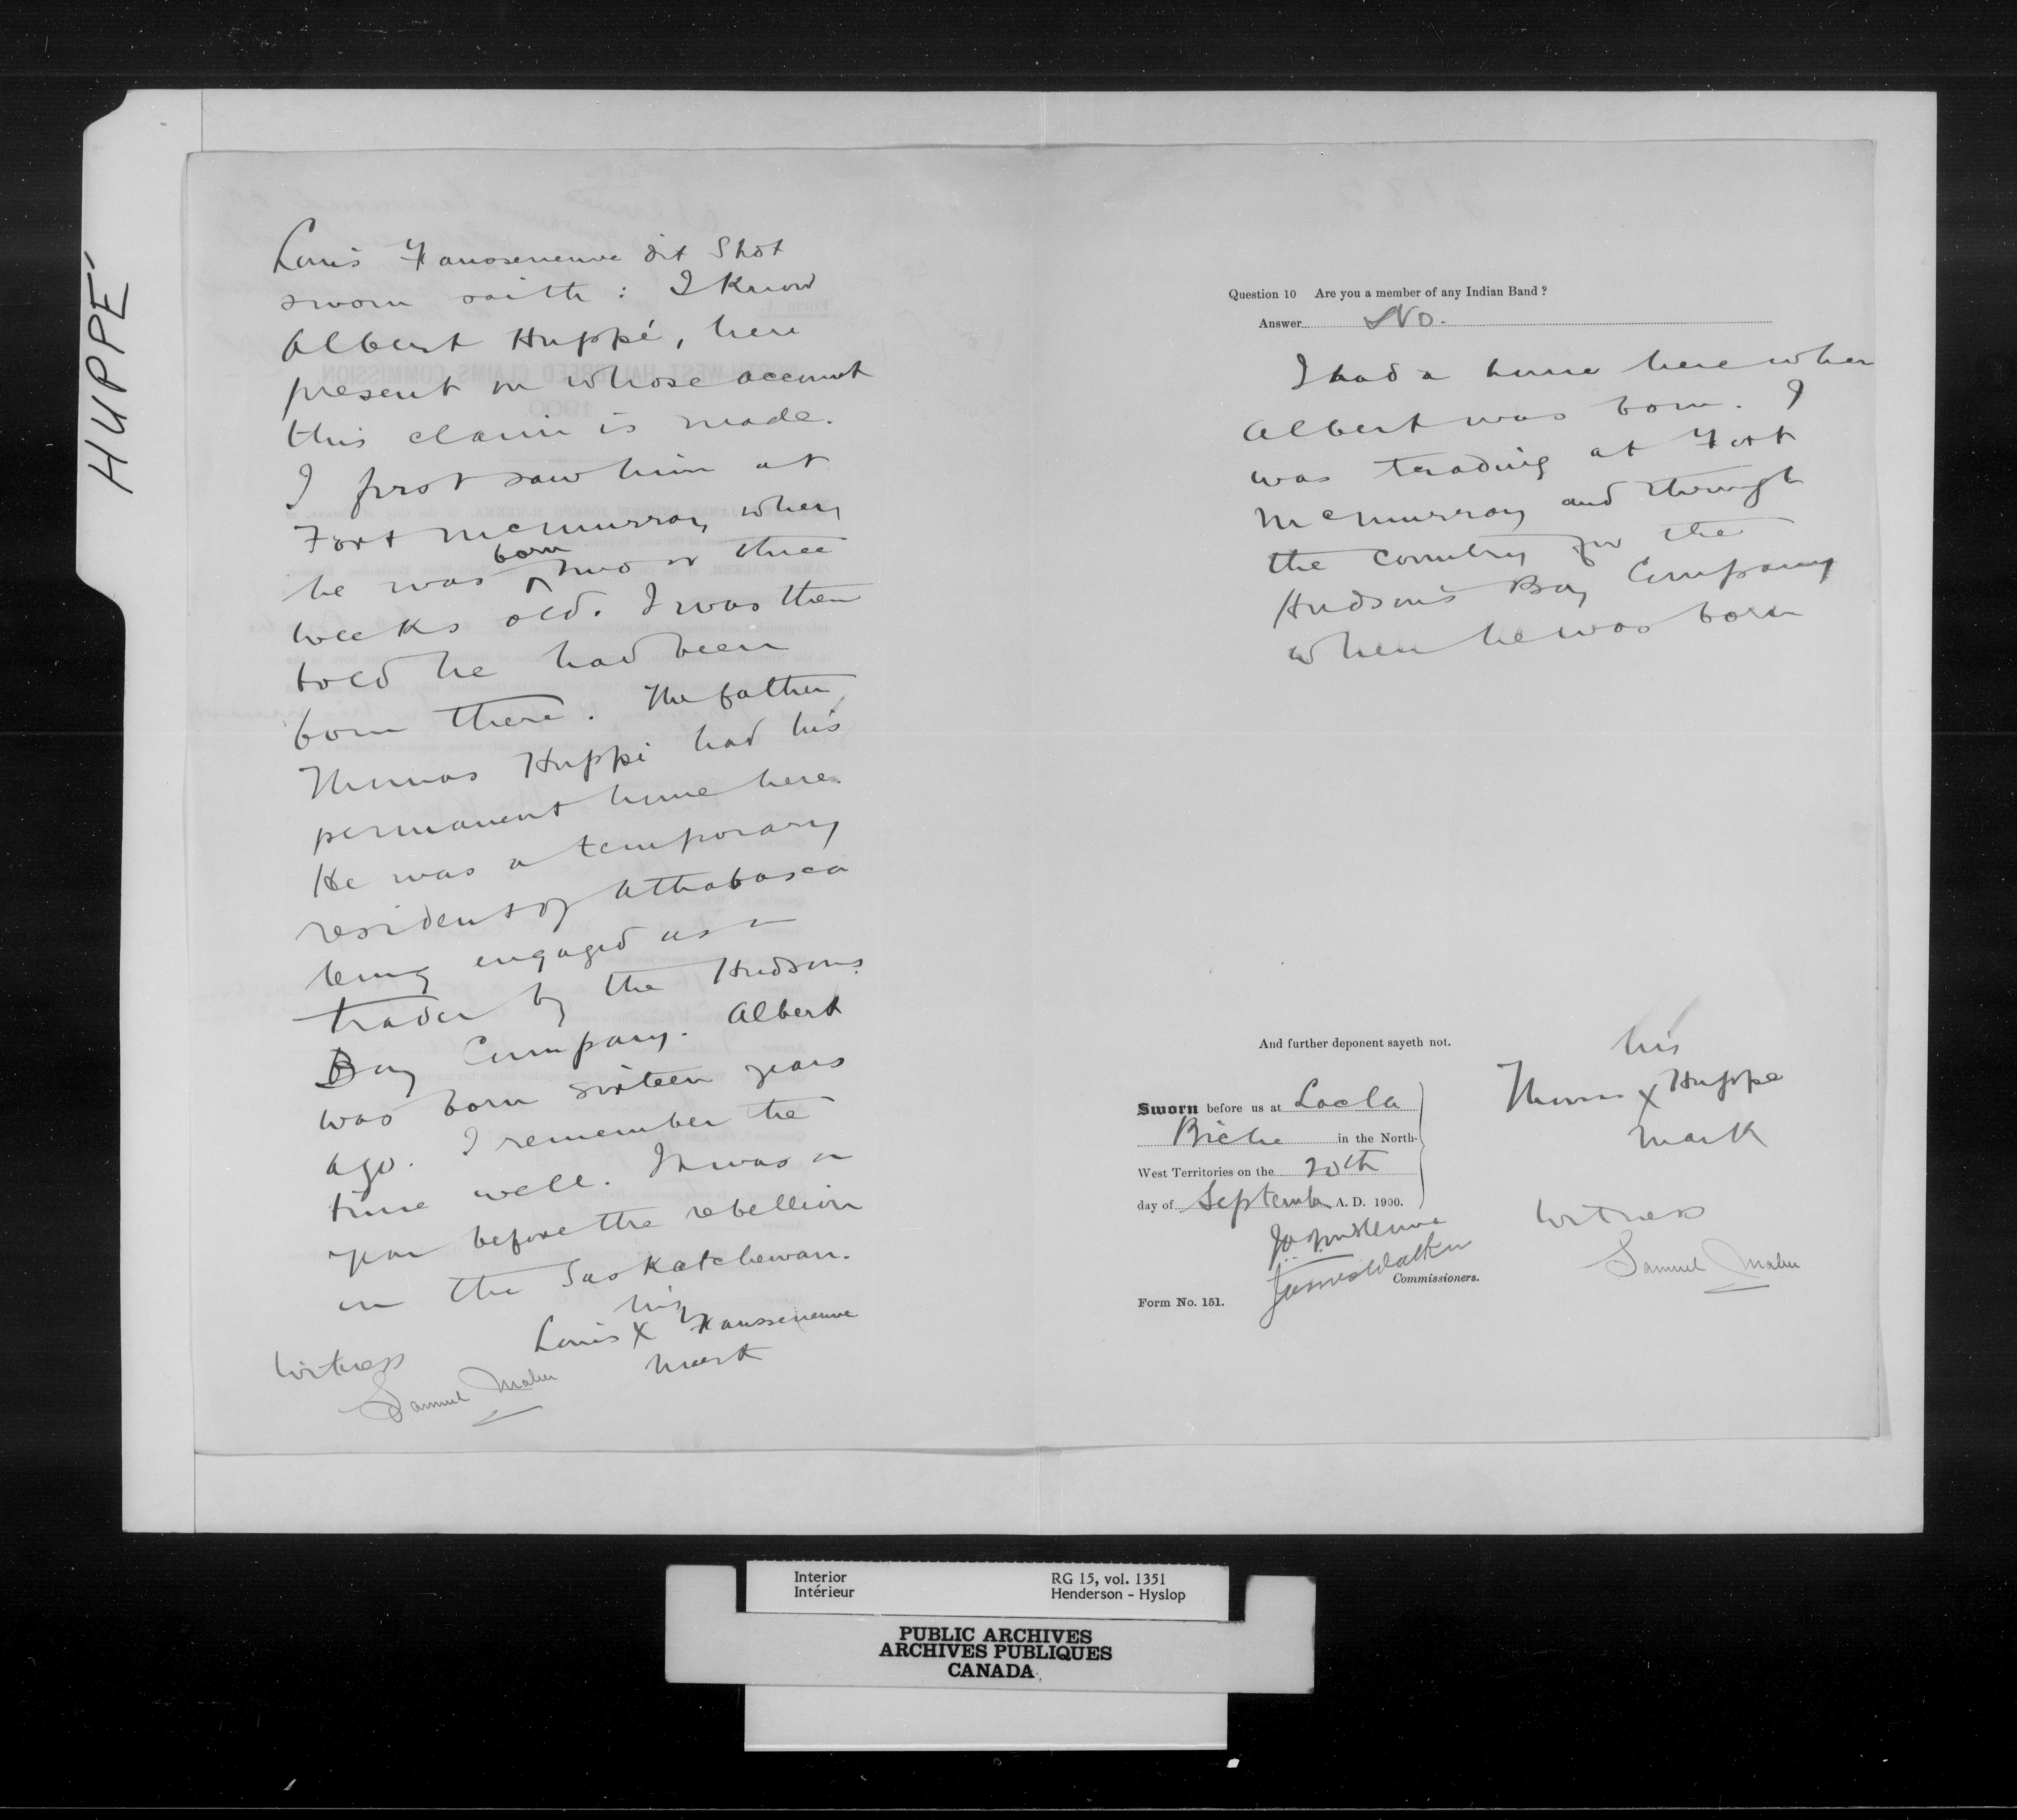 HUPPÉ
Louis Fausseneuve dit Shot
sworn saith: I Know
Albert Huppé, here
present on whose account
this claim is made.
I first saw him at
Fort McMurray when
he was born two or three
weeks old. I was then
told he had been
born there. The father
Thomas Huppé had his
permanent home here.
He was a temporary
resident of Athabasca
being engaged as a
trader by the Hudsons
Bay Company. Albert
was born sixteen years
ago. I remember the
time well. It was a
year before the rebellion
in the Saskatchewan.
his
Louis X Fausseneuve
mark
Witness
Samuel Maher
Question 10 Are you a member of any Indian Band?
Answer No.
I had a home here when
Albert was born. I
was trading at Fort
McMurray and through
the country for the
Hudson's Bay Company
when he was born
And further deponent sayeth not.
Sworn before us at Lac la
Biche in the North-
West Territories on the 20th
day of September A. D. 1900.
James Walker
Commissioners.
Form No. 151.
his
Thomas X Huppé
mark
Witness
Samuel Maher
Interior RG 15, vol. 1351
Intérieur Henderson - Hyslop
PUBLIC ARCHIVES
ARCHIVES PUBLIQUES
CANADA